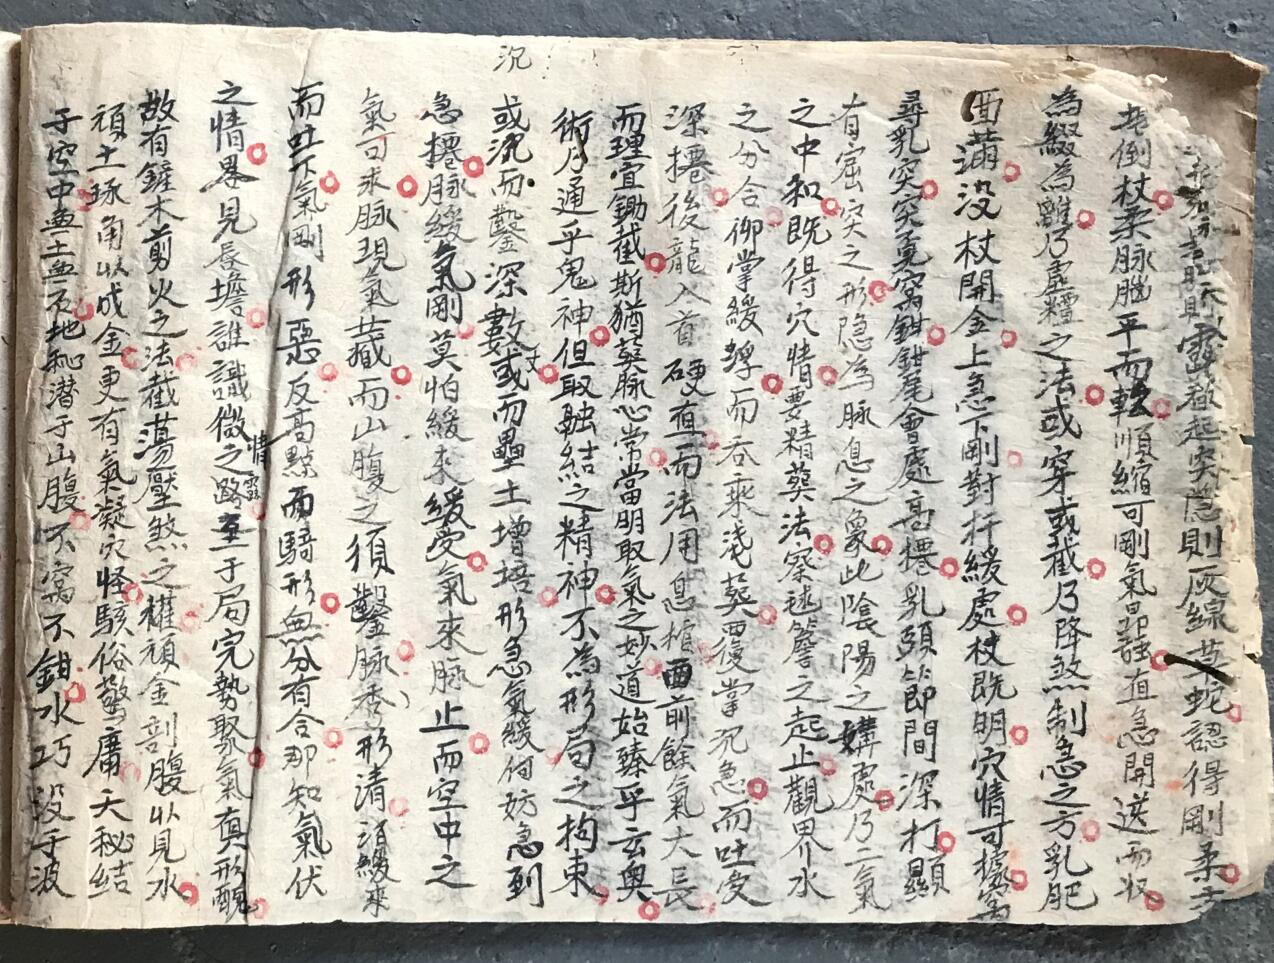 露發起突隐則灰線草蛇認得剛柔
倒杖柔脉腦平而転順縮可剛氣昂強直急開送而収
為綴為離乃虛糟之法或穿或截乃降煞制急之方乳肥
面滿没杖開金上急下剛對扞緩處杖既明穴情可據窩
尋乳突突寬窩鉗鉗尾會處高捲乳頭節間深打顯
有窟突之形隐為脉息之象此陰陽之媾處乃二氣
之中和既得穴情要精葬法察毬簷之起止觀界水
之分合仰掌緩𦂀而吞乘淺葬覆掌沉急而吐受
深捲後龍入首硬直而法用息粘面前餘氣大長
而理宜鋤截斯猶葬脉心常當明取氣之妙道始臻乎玄奥
術乃通乎鬼神但取融結之精神不為形局之拘束
沉
或沉而鑿深數丈或而壘土增培形急氣緩何妨急到
急捲脉緩氣剛莫怕緩来緩受氣來脉止而空中之
氣可求脉現氣藏而山腹之須鑿脉秀形清緩來
而吐下氣剛形惡反高點而騎形無分有合那知氣伏
之情畧見唇簷誰識微之路至于局完勢聚氣真形醜
情露
故有鏟木剪火之法截蕩壓煞之權頑金剖腹以見水
頑土琢角以成金更有氣凝穴怪駭俗驚庸天秘結
于空中無土無石地秘潜于山腹不窩不鉗水巧没于波